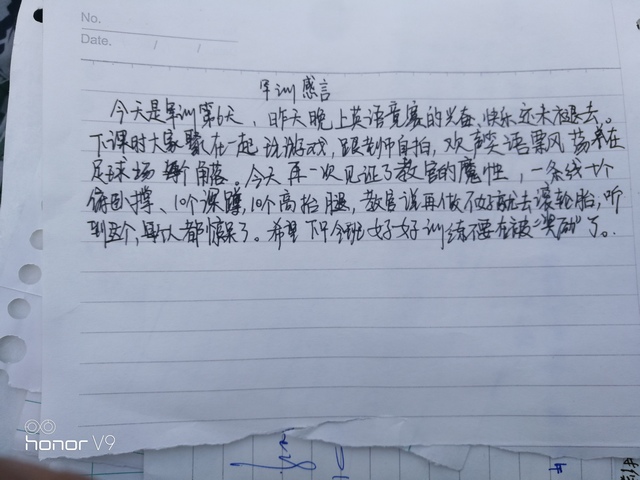 No.
Date. / /
军训感言
今天是军训第6天，昨天晚上英语竞赛的兴奋、快乐还未褪去。
下课时大家聚在一起说游戏，跟老师自拍，欢声笑语飘荡在
足球场每个角落，今天再一次见证了教官的魔性，一条线十个
俯卧撑、10个深蹲，10个高抬腿，教官说再做不好就去滚轮胎，听
到这个，众人都惊呆了。希望下午全班好好训练不要在被“奖励”了。
honor V9